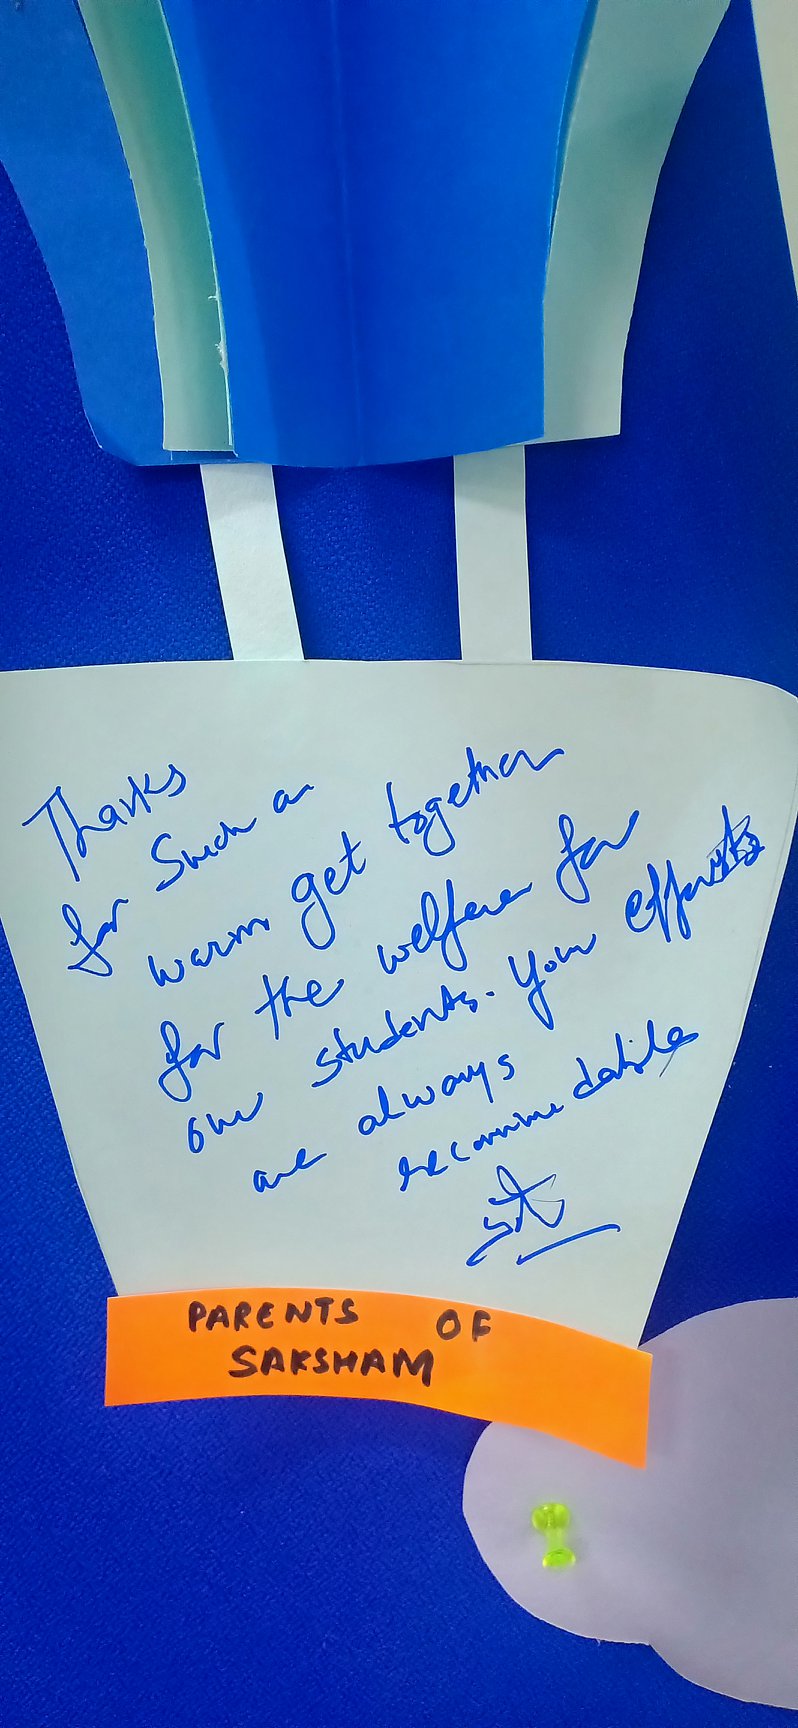 Thanks
for such a
warm get together
for the welfare for
our students. Your efforts
are always
recommedable
PARENTS OF
SAKSHAM